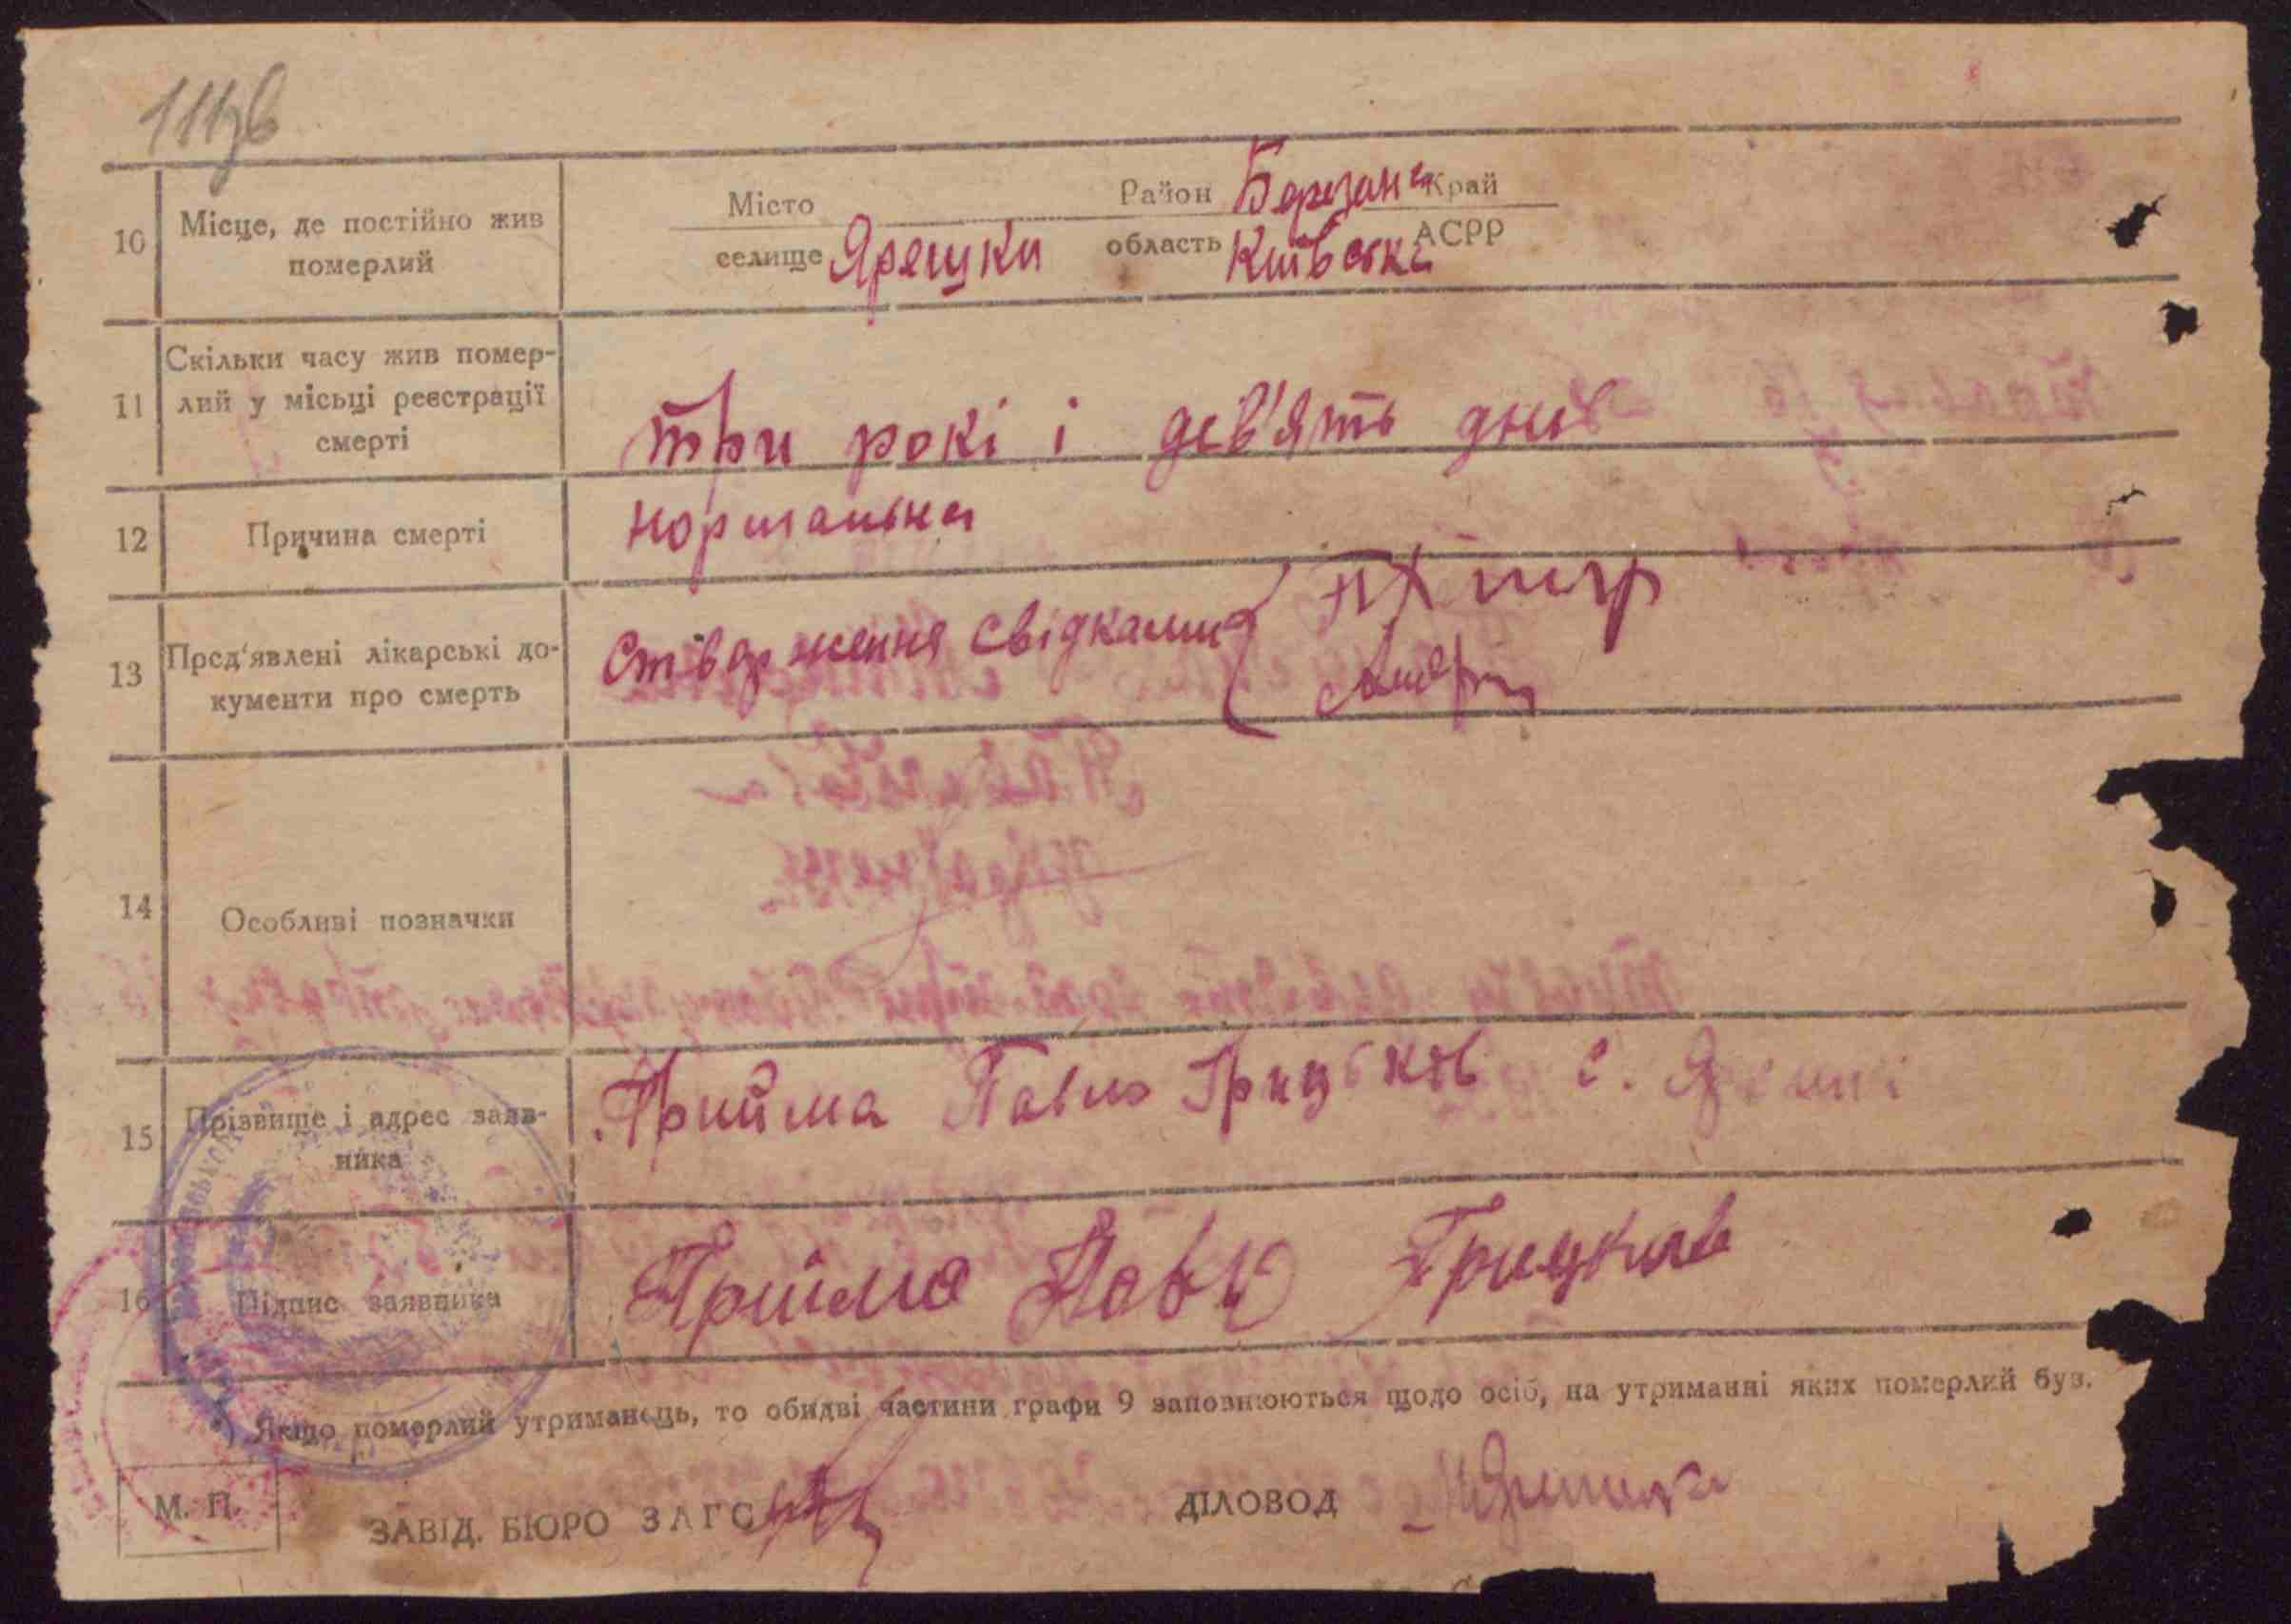 111зв
Місто Район Березансь Край
10 Місце, де постійно жив померлий
селище Ярешки область Київська АСРР
11 Скільки часу жив помер-
лий у місьці реєстрації
смерті
три рокі і дев'ять днів
12 Причина смерті нормальна
13 Пред'явлені лікарські до-
кументи про смерть
Ствердження свідками
14 Особливі позначки
15 Прізвище і адрес заяв-
ника
Прийма Павло Грицьков с.
16 Підпис заявника Прийма Павло Грицьков
*) Якщо померлий утриманець, то обидві частини графи 9 заповнюються щодо осіб, на утриманні яких померлий був.
М. П.
ЗАВІД. БЮРО ЗАГС ДІЛОВОД